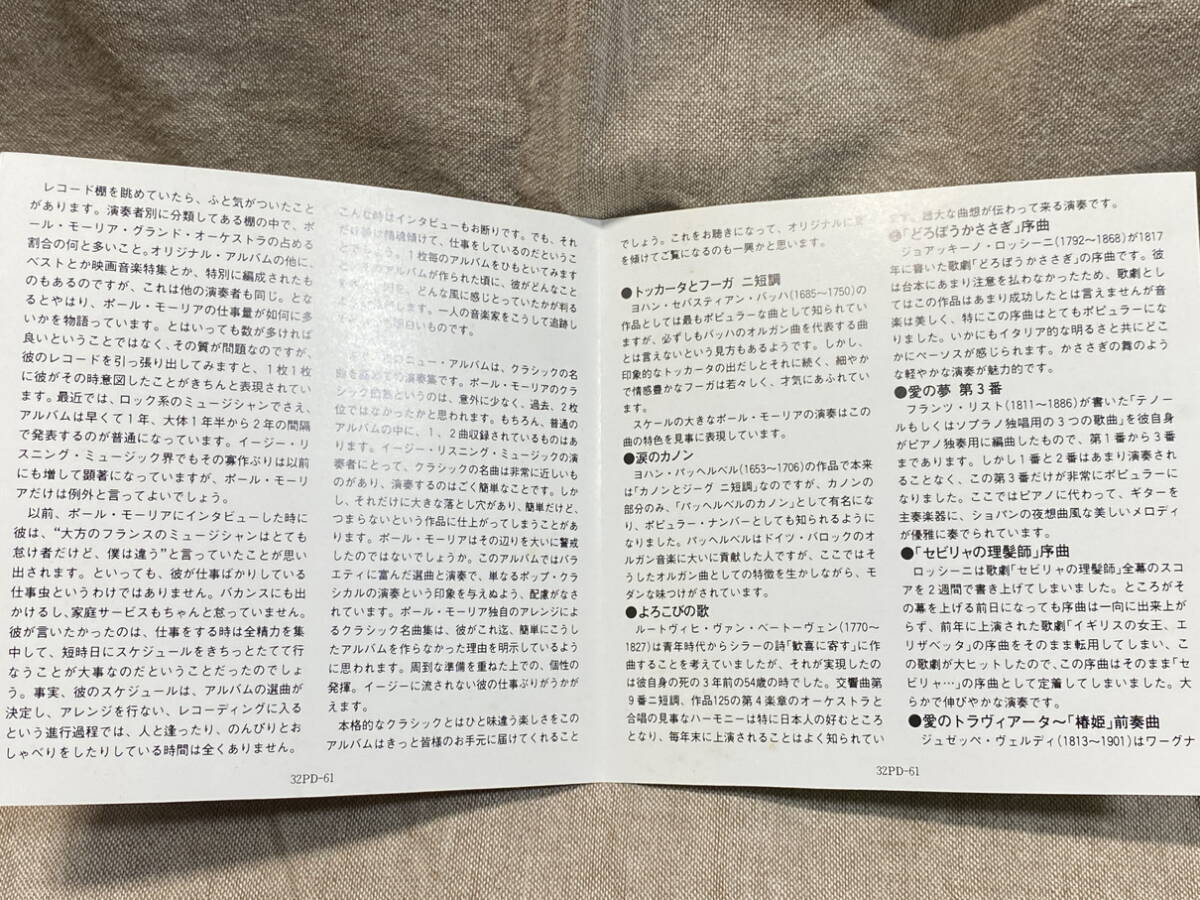 レコード棚を眺めていたら、ふと気がついたこと
があります。演奏者別に分類してある棚の中で、ポ
ール・モーリア・グランド・オーケストラの占める
割合の何と多いこと。オリジナル・アルバムの他に、
ベストとか映画音楽特集とか、特別に編成されたも
のもあるのですが、これは他の演奏者も同じ。とな
るとやはり、ポール・モーリアの仕事量が如何に多
いかを物語っています。とはいっても数が多ければ
良いということではなく、その質が問題なのですが、
彼のレコードを引っ張り出してみますと、1枚1枚
に彼がその時意図したことがきちんと表現されてい
ます。最近では、ロック系のミュージシャンでさえ、
アルバムは早くて1年、大体1年半から2年の間隔
で発表するのが普通になっています。イージー・リ
スニング・ミュージック界でもその寡作ぶりは以前
にも増して顕著になっていますが、ポール・モーリ
アだけは例外と言ってよいでしょう。
以前、ポール・モーリアにインタビューした時に
彼は、“大方のフランスのミュージシャンはとても
怠け者だけど、僕は違う”と言っていたことが思い
出されます。といっても、彼が仕事ばかりしている
仕事虫というわけではありません。バカンスにも出
かけるし、家庭サービスもちゃんと怠っていません。
彼が言いたかったのは、仕事をする時は全精力を集
中して、短時日にスケジュールをきちっとたてて行
なうことが大事なのだということだったのでしょ
う。事実、彼のスケジュールは、アルバムの選曲が
決定し、アレンジを行ない、レコーディングに入る
という進行過程では、人と逢ったり、のんびりとお
しゃべりをしたりしている時間は全くありません。
こんな時はインタビューもお断りです。でも、それ
だけ彼は精魂傾けて、仕事をしているのだというこ
とでしょう。1枚毎のアルバムをひもといてみます
と、そのアルバムが作られた頃に、彼がどんなこと
を、どんな風に感じとっていたかが判る
一人の音楽家をこうして追跡し
白いものです。
のニュー・アルバムは、クラシックの名
曲を集めての演奏集です。ポール・モーリアのクラ
シック曲集というのは、意外に少なく、過去、2枚
位ではなかったかと思われます。もちろん、普通の
アルバムの中に、1、2曲収録されているものはあ
ります。イージー・リスニング・ミュージックの演
奏者にとって、クラシックの名曲は非常に近しいも
のがあり、演奏するのはごく簡単なことです。しか
し、それだけに大きな落とし穴があり、簡単だけど、
つまらないという作品に仕上がってしまうことがあ
ります。ポール・モーリアはその辺りを大いに警戒
したのではないでしょうか。このアルバムではバラ
エティに富んだ選曲と演奏で、単なるポップ・クラ
シカルの演奏という印象を与えぬよう、配慮がなさ
れています。ポール・モーリア独自のアレンジによ
るクラシック名曲集は、彼がこれ迄、簡単にこうし
たアルバムを作らなかった理由を明示しているよう
に思われます。周到な準備を重ねた上での、個性の
発揮。イージーに流されない彼の仕事ぶりがうかが
えます。
本格的なクラシックとはひと味違う楽しさをこの
アルバムはきっと皆様のお手元に届けてくれること
32PD-61
でしょう。これをお聴きになって、オリジナルに耳
を傾けてご覧になるのも一興かと思います。
●トッカータとフーガ ニ短調
ヨハン・セバスティアン・バッハ(1685〜1750)の
作品としては最もポピュラーな曲として知られてい
ますが、必ずしもバッハのオルガン曲を代表する曲
とは言えないという見方もあるようです。しかし、
印象的なトッカータの出だしとそれに続く、細やか
で情感豊かなフーガは若々しく、才気にあふれてい
ます。
スケールの大きなポール・モーリアの演奏はこの
曲の特色を見事に表現しています。
●涙のカノン
ヨハン・パッヘルベル(1653〜1706)の作品で本来
は「カノンとジーグ ニ短調」なのですが、カノンの
部分のみ、「パッヘルベルのカノン」として有名にな
り、ポピュラー・ナンバーとしても知られるように
なりました。パッヘルベルはドイツ・バロックのオ
ルガン音楽に大いに貢献した人ですが、ここではそ
うしたオルガン曲としての特徴を生かしながら、モ
ダンな味つけがされています。
●よろこびの歌
ルートヴィヒ・ヴァン・ベートーヴェン(1770〜
1827)は青年時代からシラーの詩「歓喜に寄す」に作
曲することを考えていましたが、それが実現したの
は彼自身の死の3年前の54歳の時でした。交響曲第
9番ニ短調、作品125の第4楽章のオーケストラと
合唱の見事なハーモニーは特に日本人の好むところ
となり、毎年末に上演されることはよく知られてい
ます。雄大な曲想が伝わって来る演奏です。
●「どろぼうかささぎ」序曲
ジョアッキーノ・ロッシーニ(1792〜1868)が1817
年に書いた歌劇「どろぼうかささぎ」の序曲です。彼
は台本にあまり注意を払わなかったため、歌劇とし
てはこの作品はあまり成功したとは言えませんが音
楽は美しく、特にこの序曲はとてもポピュラーにな
りました。いかにもイタリア的な明るさと共にどこ
かにペーソスが感じられます。かささぎの舞のよう
な軽やかな演奏が魅力的です。
●愛の夢 第3番
フランツ・リスト(1811〜1886)が書いた「テノー
ルもしくはソプラノ独唱用の3つの歌曲」を彼自身
がピアノ独奏用に編曲したもので、第1番から3番
まであります。しかし1番と2番はあまり演奏され
ることなく、この第3番だけが非常にポピュラーに
なりました。ここではピアノに代わって、ギターを
主奏楽器に、ショパンの夜想曲風な美しいメロディ
が優雅に奏でられています。
●「セビリャの理髪師」序曲
ロッシーニは歌劇「セビリャの理髪師」全幕のスコ
アを2週間で書き上げてしまいました。ところがそ
の幕を上げる前日になっても序曲は一向に出来上が
らず、前年に上演された歌劇「イギリスの女王、エ
リザベッタ」の序曲をそのまま転用してしまい、こ
の歌劇が大ヒットしたので、この序曲はそのまま「セ
ビリャ…」の序曲として定着してしまいました。大
らかで伸びやかな演奏です。
●愛のトラヴィアータ〜「椿姫」前奏曲
ジュゼッペ・ヴェルディ(1813〜1901)はワーグナ
32PD-61